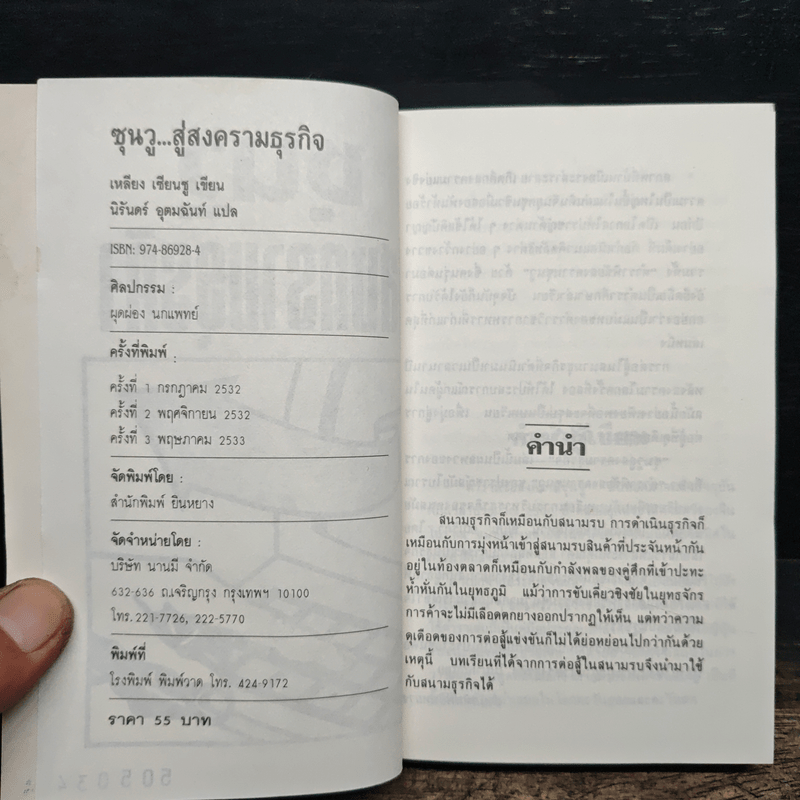 ซุนวู...สู่สงครามธุรกิจ
เหลียง เซียนชู เขียน
นิรันดร์ อุตมฉันท์ แปล
ISBN: 974-86928-4
ศิลปกรรม :
ผุดผ่อง นกแพทย์
ครั้งที่พิมพ์ :
ครั้งที่ 1 กรกฎาคม 2532
ครั้งที่ 2 พฤศจิกายน 2532
ครั้งที่ 3 พฤษภาคม 2533
จัดพิมพ์โดย :
สำนักพิมพ์ ยินหยาง
จัดจำหน่ายโดย :
บริษัท นานมี จำกัด
632-636 ถ.เจริญกรุง กรุงเทพฯ 10100
โทร. 221-7726, 222-5770
พิมพ์ที่
โรงพิมพ์ พิมพ์วาด โทร. 424-9172
ราคา 55 บาท
คำนำ
สนามธุรกิจก็เหมือนกับสนามรบ การดำเนินธุรกิจก็
เหมือนกับการมุ่งหน้าเข้าสู่สนามรบสินค้าที่ประจันหน้ากัน
อยู่ในท้องตลาดก็เหมือนกับกำลังพลของคู่ศึกที่เข้าปะทะ
ห้ำหั่นกันในยุทธภูมิ แม้ว่าการขับเคี่ยวชิงชัยในยุทธจักร
การค้าจะไม่มีเลือดตกยางออกปรากฏให้เห็น แต่ทว่าความ
ดุเดือดของการต่อสู้แข่งขันก็ไม่ได้ย่อหย่อนไปกว่ากันด้วย
เหตุนี้ บทเรียนที่ได้จากการต่อสู้ในสนามรบจึงนำมาใช้
กับสนามธุรกิจได้